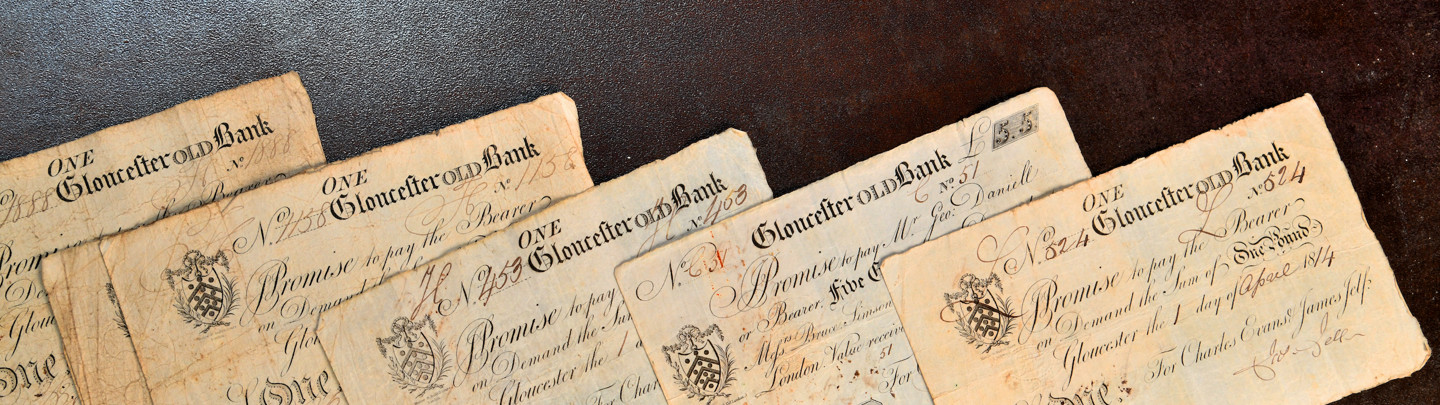 ONE
Gloucester OLD Bank
1888 No 1888
Bearer
One
ONE
No. 1158 Gloucester OLD Bank
No 1158
Promise to pay the Bearer
on Demand
ONE
H No. 453 Gloucester OLD Bank
No 453
Promise to pay
on Demand the
Gloucester the 1
For
One
£ 5.5
Gloucester OLD Bank
No 51
Promise to pay Mr. Geo: Daniell
or Bearer, Five
Messrs Bruce Simson
London, Value
51
For
ONE
No. 524 Gloucester OLD Bank
No 524
Promise to pay the Bearer
on Demand the Sum of One Pound
Gloucester the 1 day of April 1814
For Charles Evans & James Jelf:
One